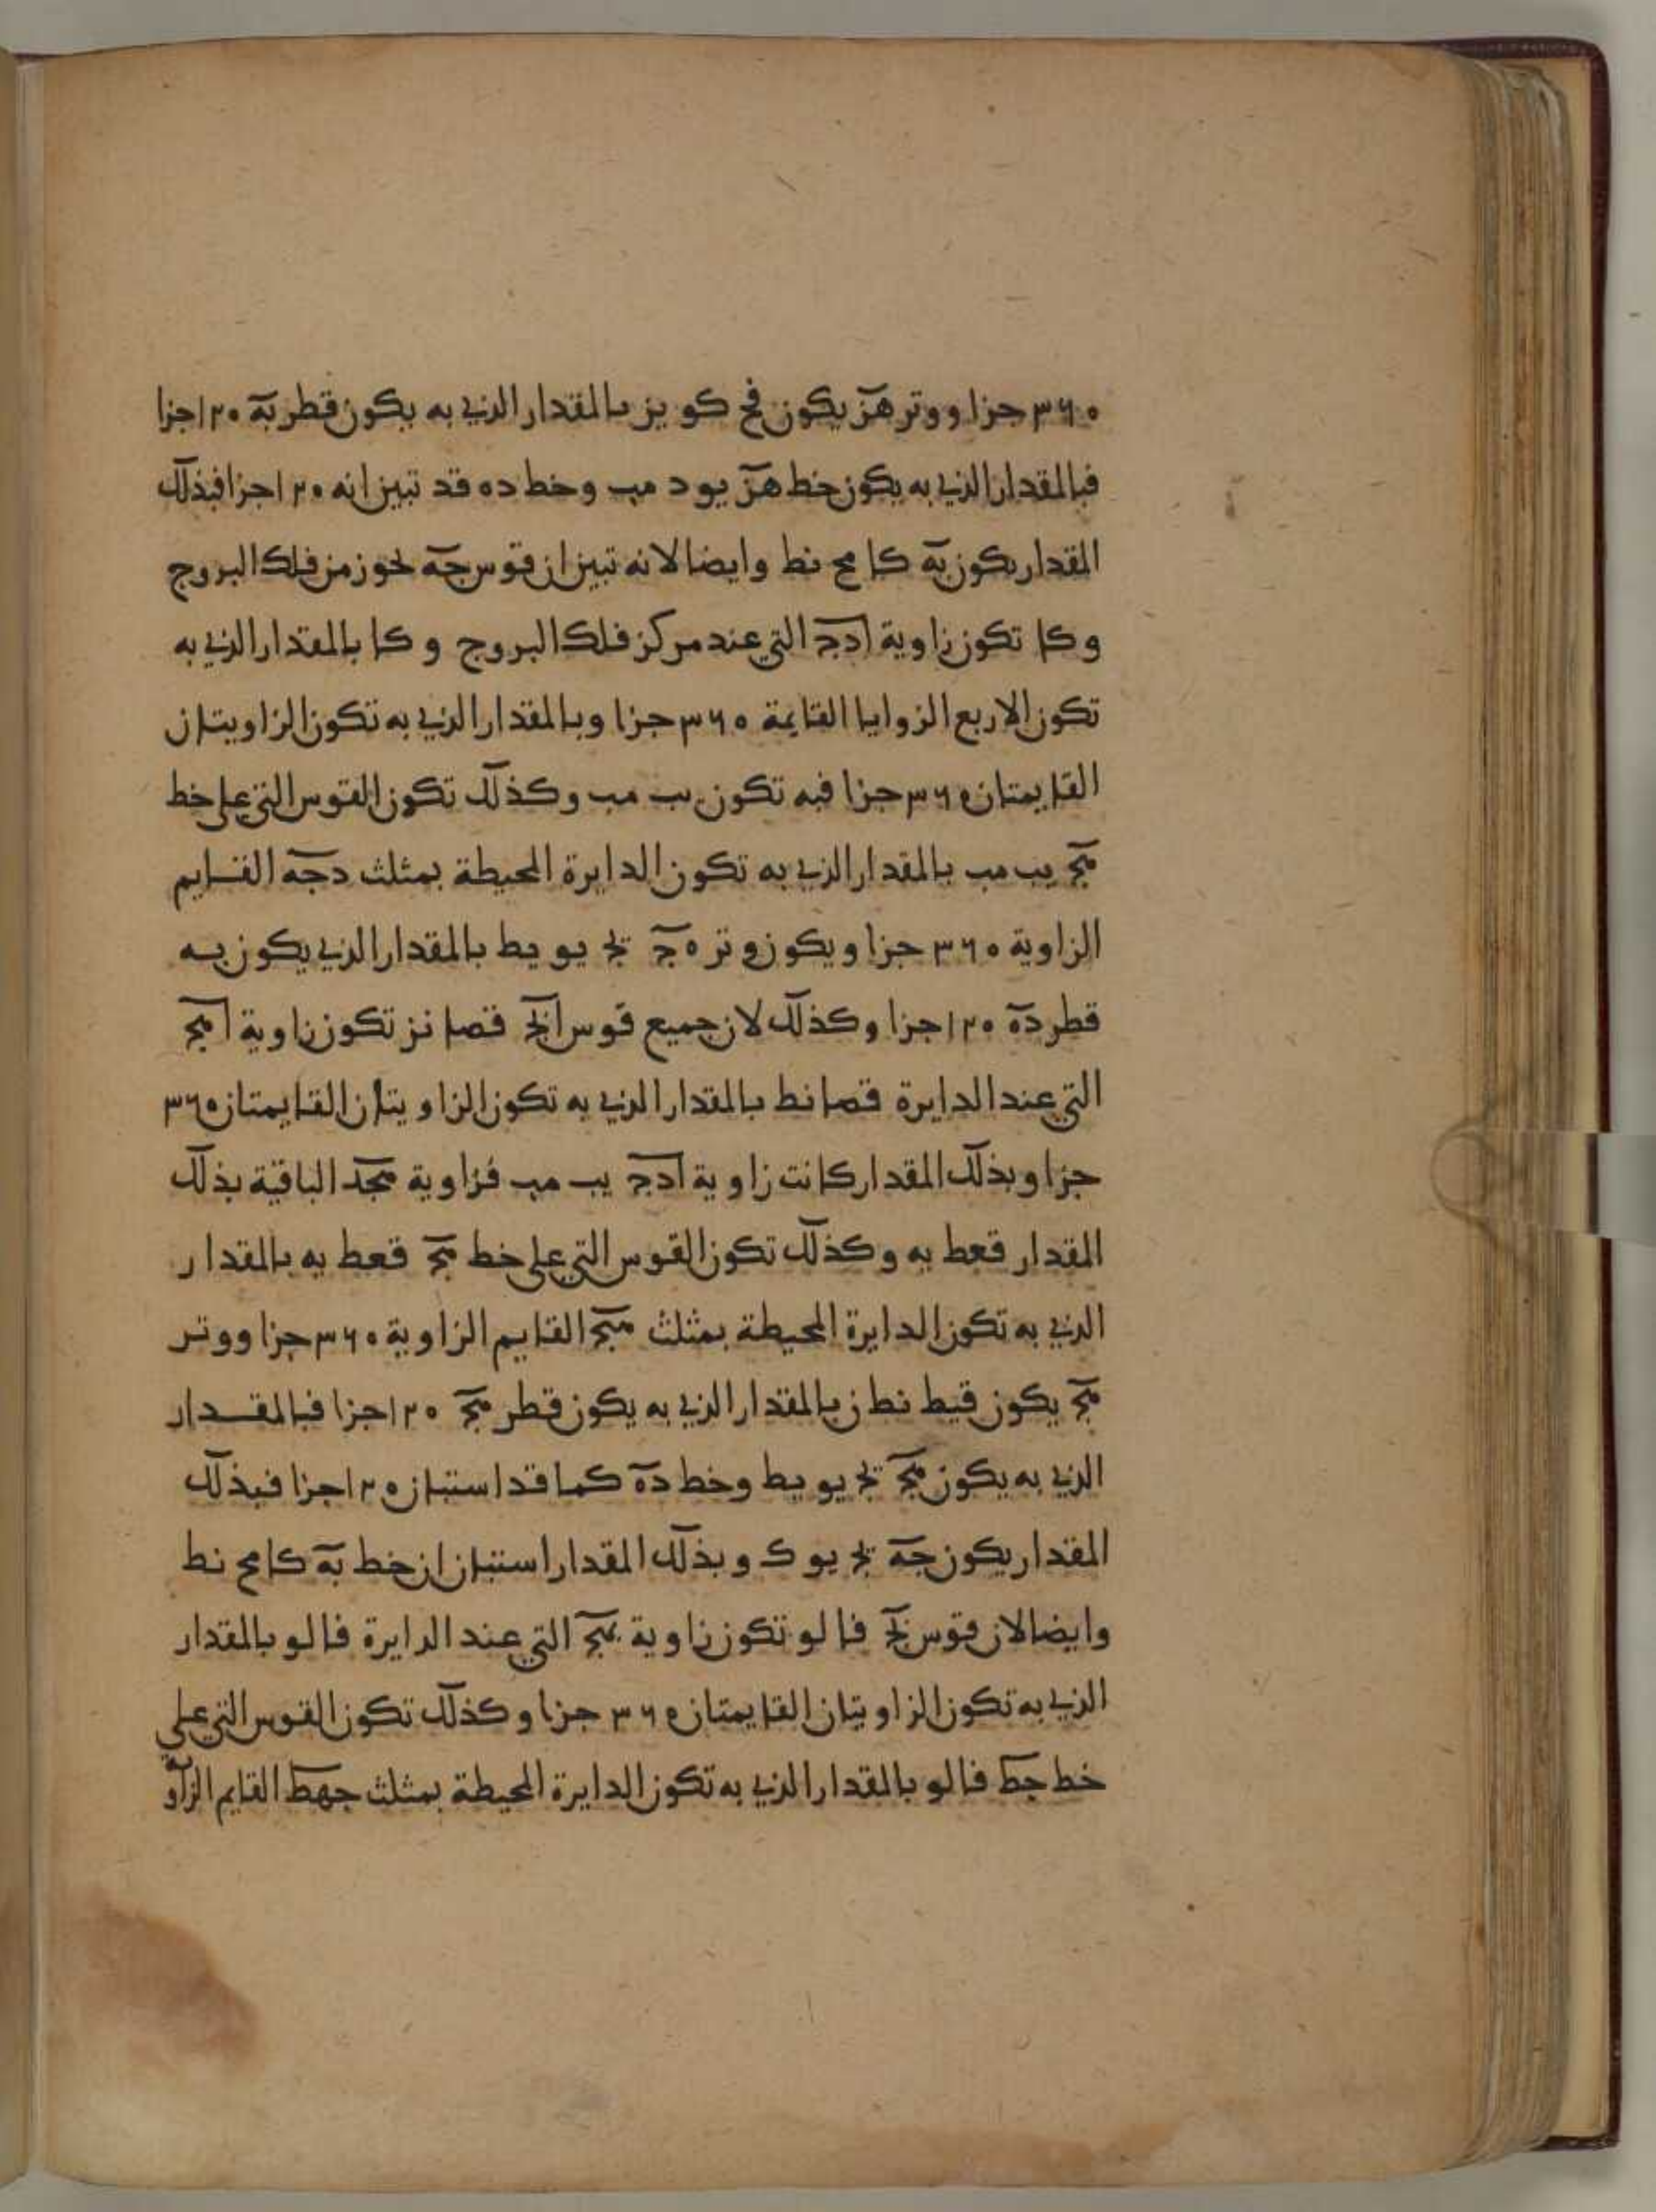 ٣٦٠ جزا ووتر هز يكون قح كو يز بالمقدار الذي به يكون قطر به ١٢٠ جزا
فبالمقدار الذي به يكون خط هز يو د مب وخط ده قد تبين انه ١٢٠ جزا فبذلك
المقدار يكون به كا مح نط وايضا لانه تبين ان قوس جه نحو ز من فلك البروج
و كا تكون زاوية ادج التي عند مركز فلك البروج و كا بالمقدار الذي به
تكون الاربع الزوايا القايمة ٣٦٠ جزا وبالمقدار الذي به تكون الزاويتان
القايمتان ٣٦٠ جزا فبه تكون يب مب وكذلك تكون القوس التي على خط
مج يب مب بالمقدار الذي به تكون الدايرة المحيطة بمثلث دجه القايم
الزاوية ٣٦٠ جزا ويكون وتر هج يج يو يط بالمقدار الذي يكون به
قطر ده ١٢٠ جزا وكذلك لان جميع قوس ابج قصا نز تكون زاوية امج
التي عند الدايرة قصا نط بالمقدار الذي به تكون الزاويتان القايمتان ٣٦٠
جزا وبذلك المقدار كانت زاوية ادج يب مب فزاوية مجد الباقية بذلك
المقدار قعط يه وكذلك تكون القوس التي على خط مج قعط يه بالمقدار
الذي به تكون الدايرة المحيطة بمثلث مبج القايم الزاوية ٣٦٠ جزا ووتر
مج يكون قيط نط ز بالمقدار الذي به يكون قطر مج ١٢٠ جزا فبالمقدار
الذي به يكون مج يج يو يط وخط ده كما قد استبان ١٢٠ جزا فبذلك
المقدار يكون جه يج يو ك وبذلك المقدار استبان ان خط به كا مح نط
وايضا لان قوس بج فا لو تكون زاوية بمج التي عند الدايرة فا لو بالمقدار
الذي به تكون الزاويتان القايمتان ٣٦٠ جزا وكذلك تكون القوس التي على
خط جط فا لو بالمقدار الذي به تكون الدايرة المحيطة بمثلث جهط القايم الزاوية